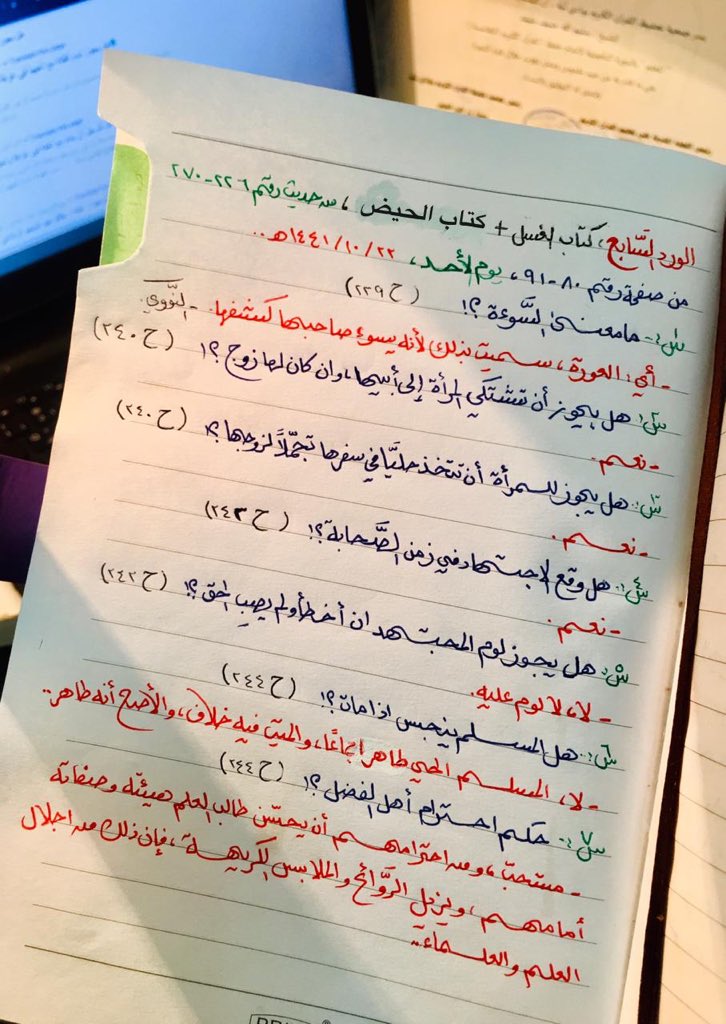 الورد السّابع، كتاب الغسل + كتاب الحيض، من حديث رقم ٢٢٦-٢٧٠
من صفحة رقم ٨٠-٩١، يوم الأحد، ٢٢/١٠/١٤٤١هـ..
س١: ما معنى السَّوءة؟! (ح٢٣٩)
- أي: العورة، سميت بذلك لأنه يسوء صاحبها كشفها. - النّووي.
س٢: هل يجوز أن تشتكي المرأة إلى أبيها، وان كان لها زوج؟! (ح٢٤٠)
- نعم.
س٣: هل يجوز للمرأة أن تتخذ حليًّا في سفرها تجمّلاً لزوجها؟! (ح٢٤٠)
- نعم.
س٤: هل وقع الاجتهاد في زمن الصَّحابة؟! (ح٢٤٣)
- نعم.
س٥: هل يجوز لوم المجتهد ان أخطأ ولم يصِبِ الحق؟! (ح٢٤٢)
- لا، لا لوم عليه.
س٦: هل المسلم ينجس اذا مات؟! (ح٢٤٤)
- لا، المسلم الحي طاهر اجماعًا، والميّت فيه خلاف، والأصح أنه طاهر..
س٧: حكم احترام أهل الفضل؟! (ح٢٤٤)
- مستحبّ، ومن احترامهم أن يحسّن طالب العلم هيئته وصفاته
أمامهم، ويزيل الرّوائح والملابس الكريهة، فإن ذلك من اجلال
العلم والعلماء..